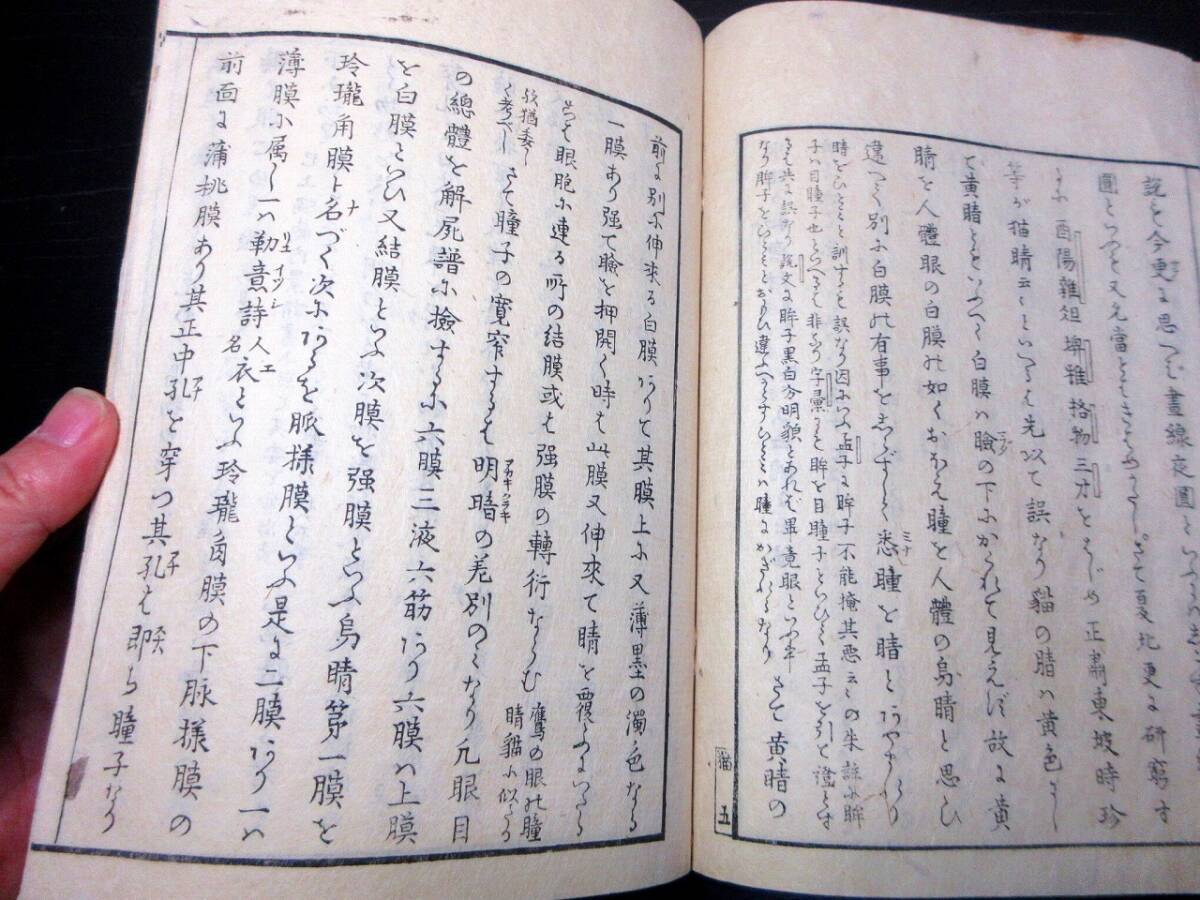 説を今更に思へば晝線夜圓と
圓といへるを又允當ともきはめがたし。さて夏北更に研窮す
るに酉陽雜俎埤雅格物三才をはじめ正肅東坡時珍
等が猫睛云々といへるは先以て誤なり貓の睛ハ黄色にし
て黄睛ともいふべく白膜ハ瞼の下にかくれて見えず故に黄
睛を人體眼の白膜の如くおぼえ瞳を人體の烏睛と思ひ
違へて別に白膜の有事をしらずして悉瞳を睛とあやまれり
睛をひとみと訓するも誤なり因にいふ孟子に眸子不能掩其悪云々の朱註に眸
子ハ目瞳子也といへるも非なり字彙にも眸を目瞳子といひて孟子を引て證とす
るは共に誤なり説文に眸子黒白分明貌とあれば畢竟眼といふ事
なり眸子をひとみとおもひ違ふべからずひとみハ瞳にかぎれるなり さて黄睛の
前に別に伸来る白膜ありて其膜上に又薄墨の濁色なる
一膜あり强て瞼を押開く時は此膜又伸來て睛を覆ふにいたる
こは眼胞に連る所の結膜或は强膜の轉衍ならむ 鷹の眼の瞳
睛貓に似たり
考べし さて瞳子の寛窄するは明暗の差別のミなり凡眼目
の總體を解屍譜に撿するに六膜三液六筋あり六膜ハ上膜
を白膜といひ又結膜といふ次膜を强膜といふ烏睛第一膜を
玲瓏角膜と名づく次にあるを脈様膜といふ是に二膜あり一ハ
薄膜に属し一ハ勒意詩人名衣といふ玲瓏角膜の下脉樣膜の
前面に蒲桃膜あり其正中孔を穿つ其孔は即ち瞳子なり
猫 五